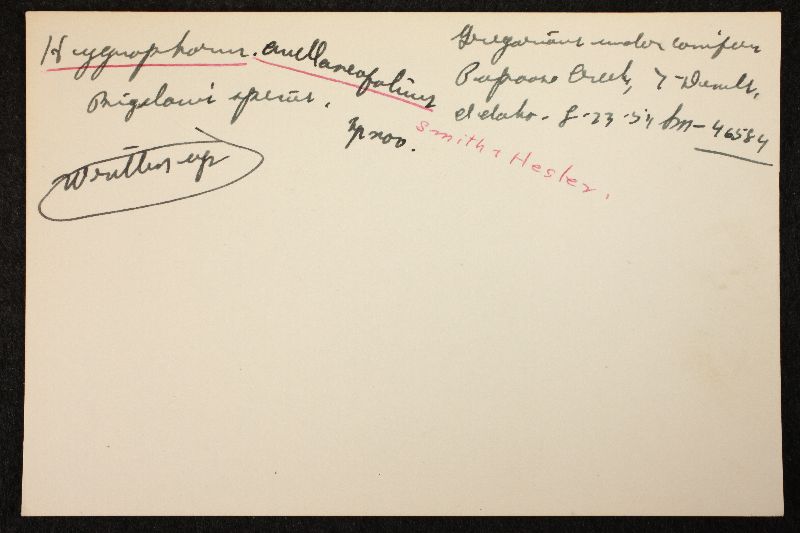 Hygrophorus avellaneofolius
Bigelow's species.
prov.
Smith & Hesler.
Written up
Gregarious under conifers
Papoose Creek, 7-Devils,
Idaho - 8-23-54 Sm-46584